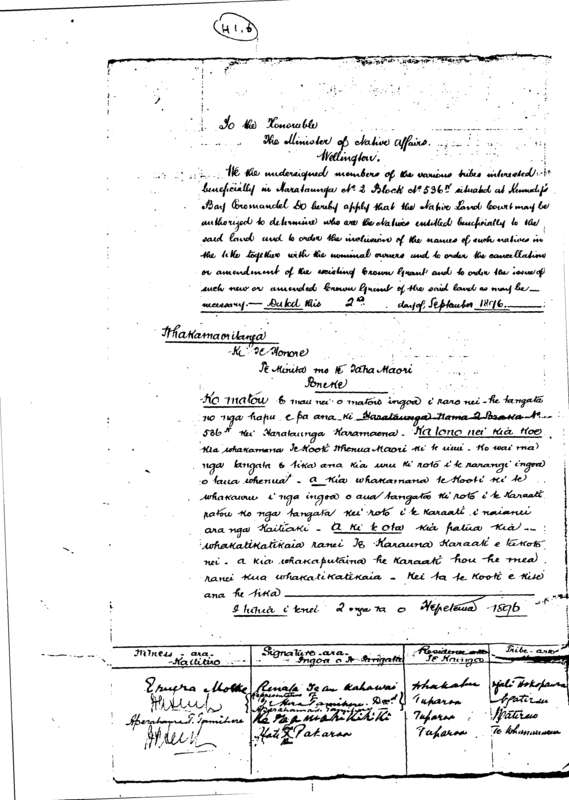 H1.6
To the Honorable
The Minister of Native Affairs.
Wellington.
We the undersigned members of the various tribes interested
beneficially in Harataunga No 2 Block No 536 N situated at Kennedy's
Bay Coromandel Do hereby apply that the Native Land Court may be
authorized to determine who are the Natives entitled beneficially to the
said land and to order the inclusion of the names of such natives in
the title together with the nominal owners and to order the cancellation
or amendment of the existing Crown Grant and to order the issue of
such new or amended Crown Grant of the said land as may be
necessary. — Dated this 2nd day of September 1896.
Whakamaoritanga
Ki Te Honore
Te Minita mo te Taha Maori
Poneke
Ko matou e mau nei o matou ingoa i raro nei - he tangata
no nga hapu e pa ana ki Harataunga Nama 2 Poraka No
536 N kei Harataunga Karamaena - Ka tono nei kia koe
kia whakamana Te Kooti Whenua Maori ki te uiui - Ko wai ma
nga tangata e tika ana kia uru ki roto i te rarangi ingoa
o taua whenua - a kia whakamana te Kooti ki te
whakauru i nga ingoa o aua tangata ki roto i te Karaati
ratou ko nga tangata kei roto i te Karaati i naianei
ara nga Kaitiaki - A ki te ota kia patua kia
whakatikatikaia ranei Te Karauna Karaati e takoto
nei - a kia whakaputaina he Karaati hou he mea
ranei kua whakatikatikaia - Kei ta te Kooti e kite
ana he tika
I tuhia i tenei 2 nga ra o Hepetema 1896
Witness - ara - Kaititiro
Signature - ara - Ingoa o te
Residence - ara Te Kainga
Tribe - ara
Renata Te Kahawai
Representative
Aperahama T. Tamihere
Tuparoa
Tuparoa
Hati Pakaroa
Tuparoa
Te Whanau